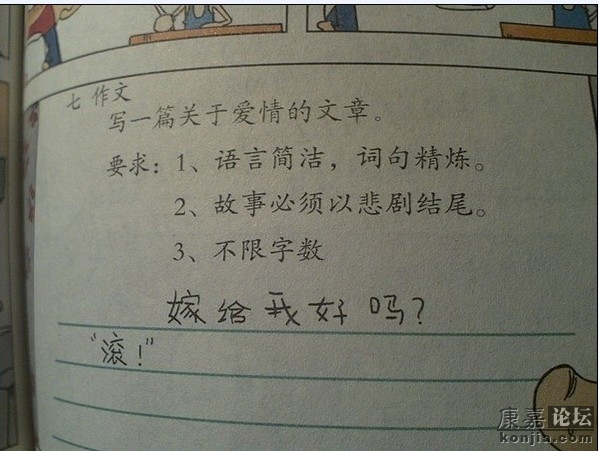 七 作文
写一篇关于爱情的文章。
要求：1、语言简洁，词句精炼。
2、故事必须以悲剧结尾。
3、不限字数
嫁给我好吗？
“滚！”
康嘉论坛
konjia.com